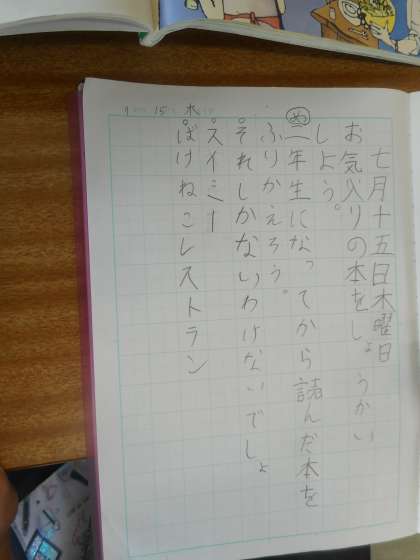 七月十五日木曜日
お気入りの本をしょうかい
しよう。
め 二年生になってから詰んだ本を
ふりかえろう。
それしかないわけないでしょ
スイミー
ばけねこレストラン
15 木